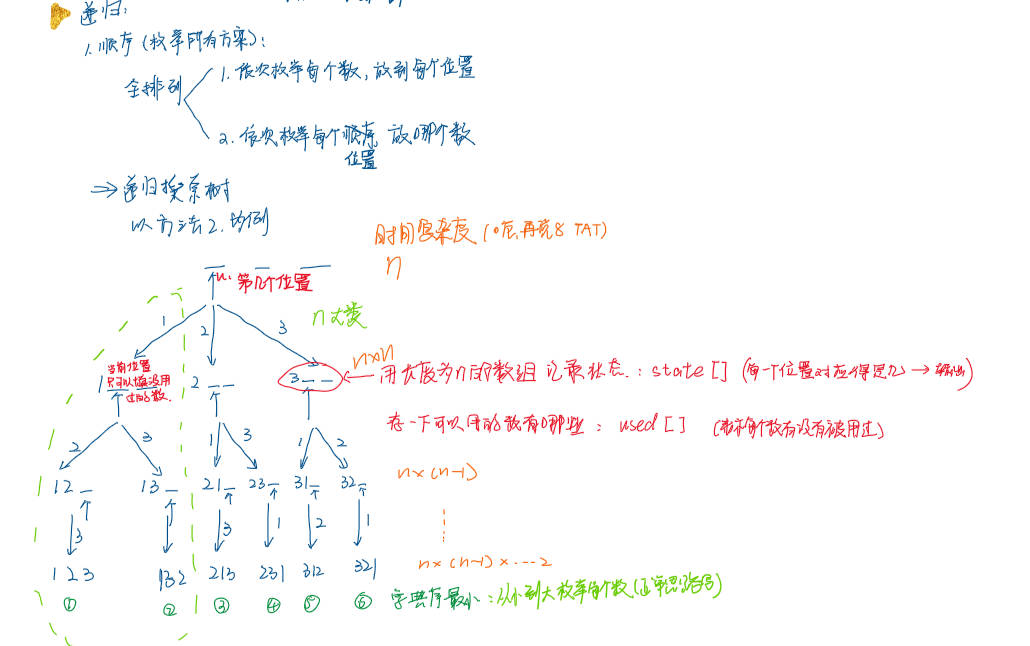 递归:
1. 顺序 (枚举所有方案):
全排列
1. 依次枚举每个数, 放到每个位置
2. 依次枚举每个顺序 放哪个数
位置
⇒ 递归搜索树
以方法2. 为例
时间复杂度 (
TAT)
n
u. 第几个位置
n大类
1 2 3
n×n
当前位置
只可以填没用
过的数.
1 _ _ 2 _ _ 3 _ _
用长度为n的数组 记录状态: state [] (每一个位置对应得是几 →
)
下可以用的数有哪些: used [] (
每个数有没有被用过)
2 3 1 3 1 2
n×(n-1)
12_ 13_ 21_ 23_ 31_ 32_
3 3 1 2 1
n×(n-1)×...2
123 132 213 231 312 321
① ② ③ ④ ⑤ ⑥
字典序最小: 从小到大枚举每个数 (
)